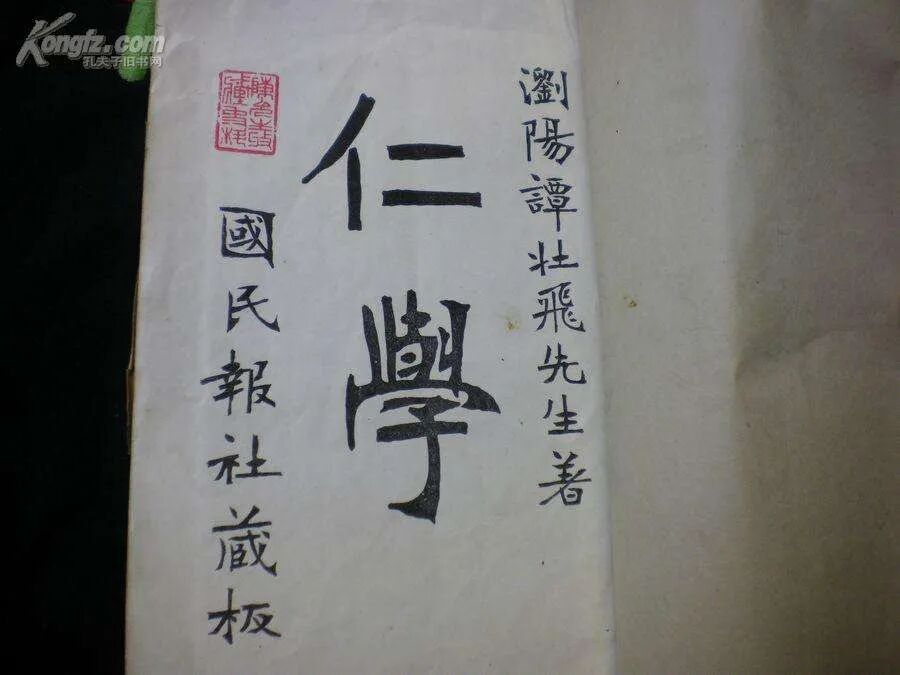 Kongfz.com
孔夫子旧书网
瀏陽譚壯飛先生著
仁學
國民報社蔵板